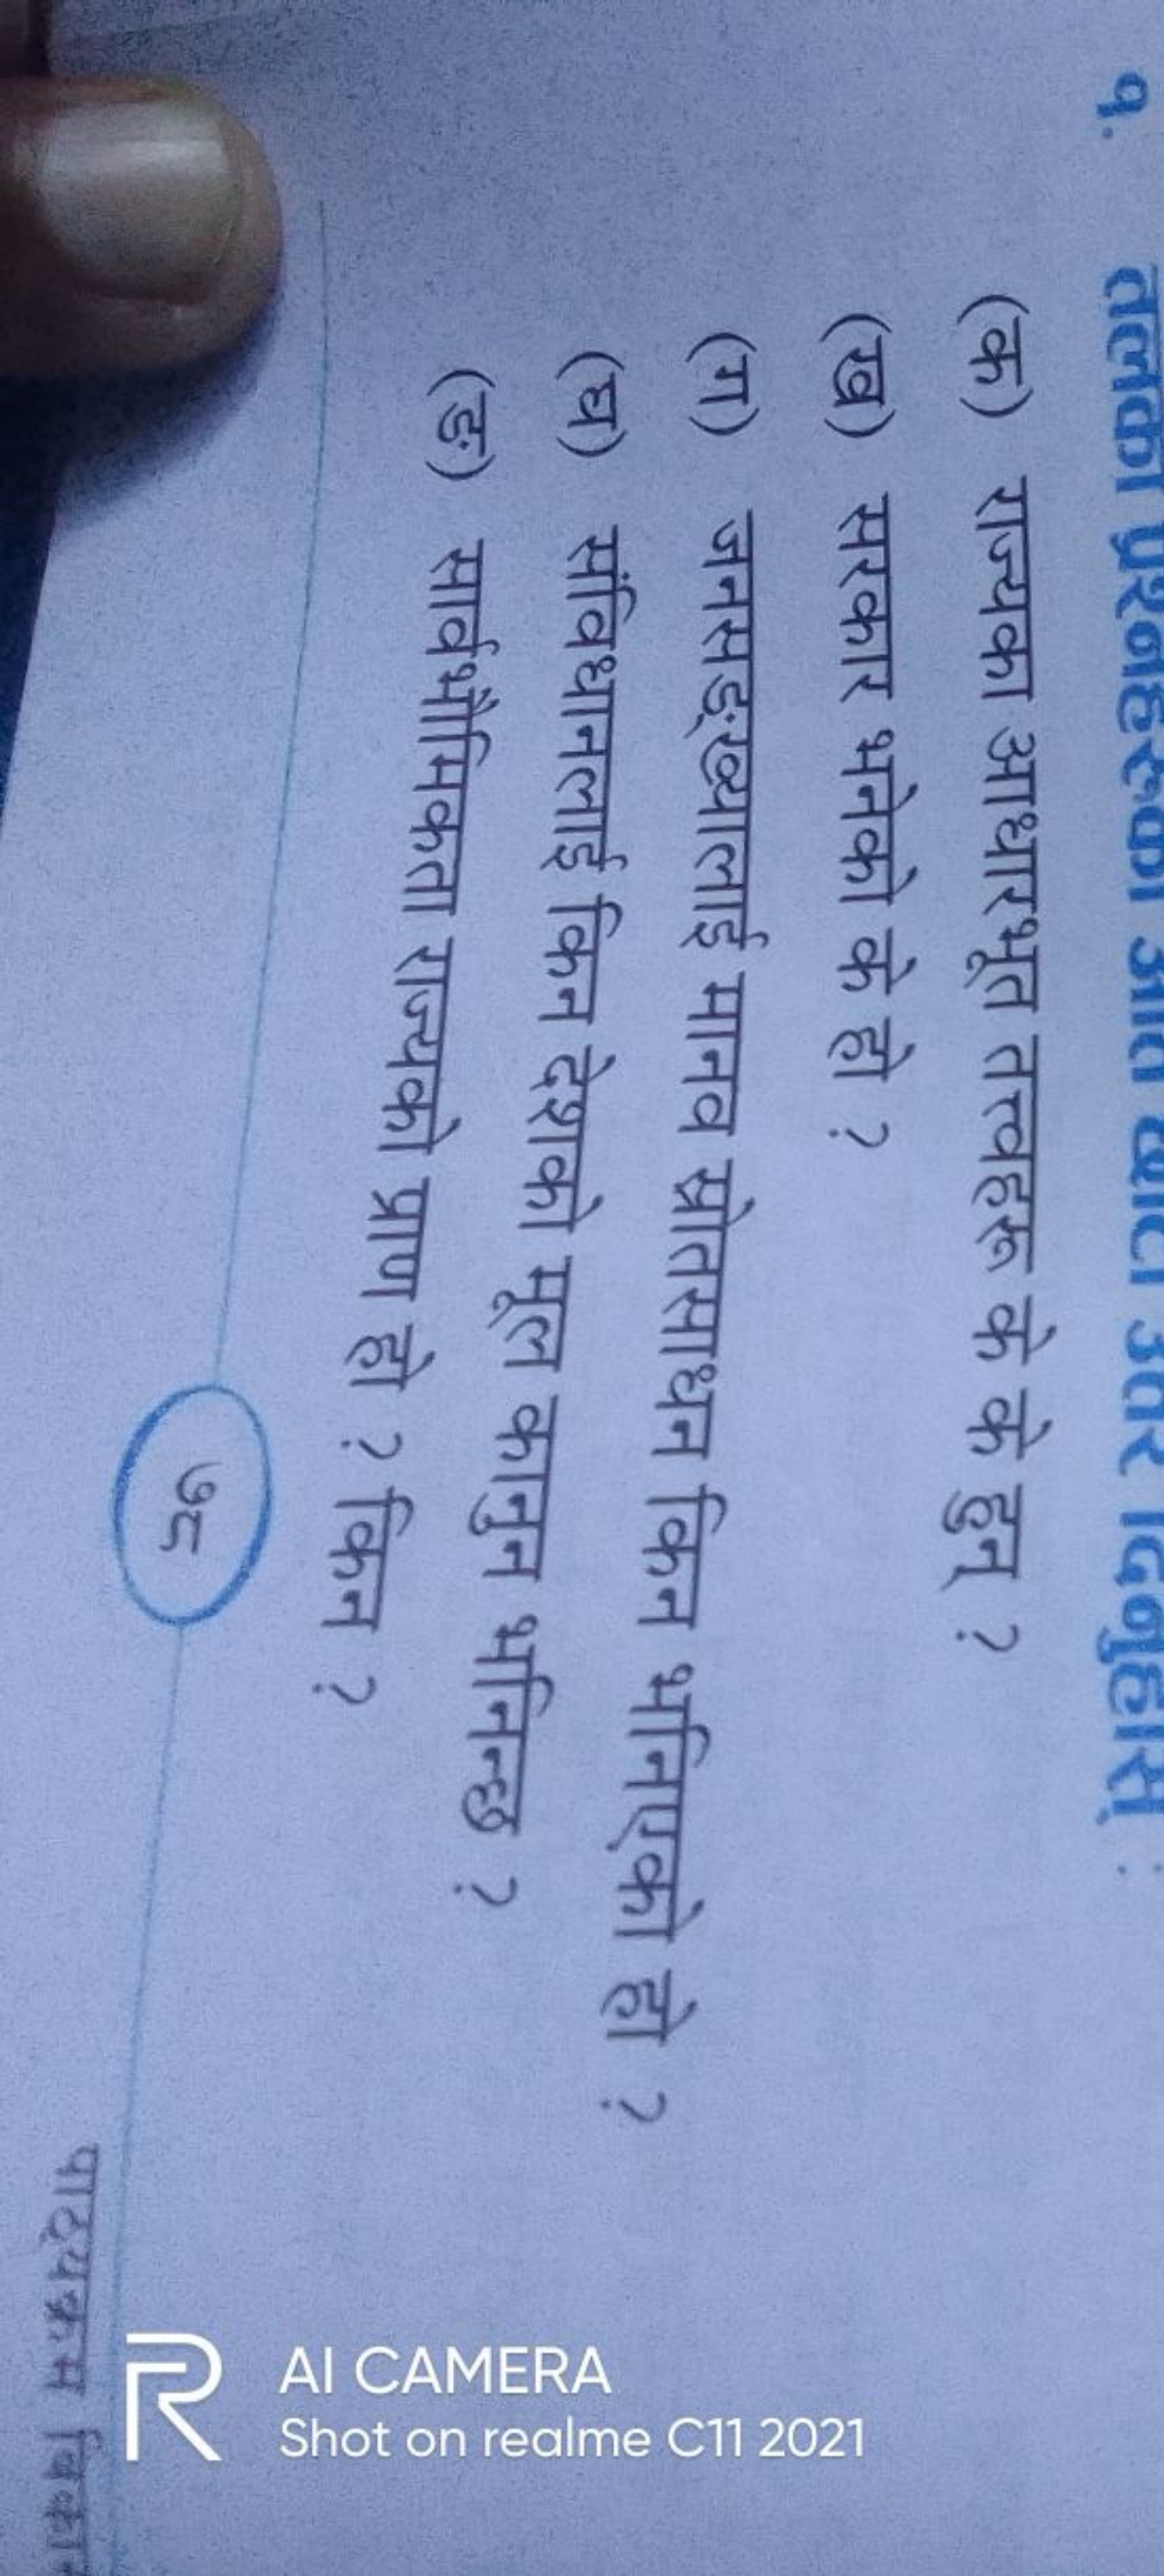 १. तलका प्रश्नहरूको अति छोटो उत्तर दिनुहोस् :
(क) राज्यका आधारभूत तत्त्वहरू के के हुन् ?
(ख) सरकार भनेको के हो ?
(ग) जनसङ्ख्यालाई मानव स्रोतसाधन किन भनिएको हो ?
(घ) संविधानलाई किन देशको मूल कानुन भनिन्छ ?
(ङ) सार्वभौमिकता राज्यको प्राण हो ? किन ?
७८
पाठ्यक्रम
AI CAMERA
Shot on realme C11 2021